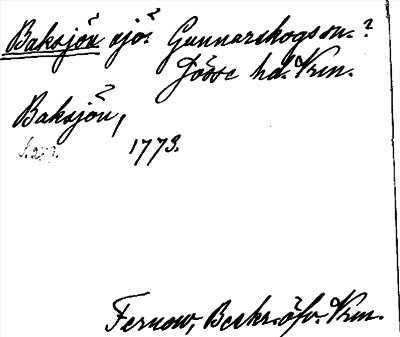 Baksjön sjö. Gunnarskogs sn.?
Jösse hd. Vrm.
Baksjön,
1773.
Fernow, Beskr. öfv. Vrm.